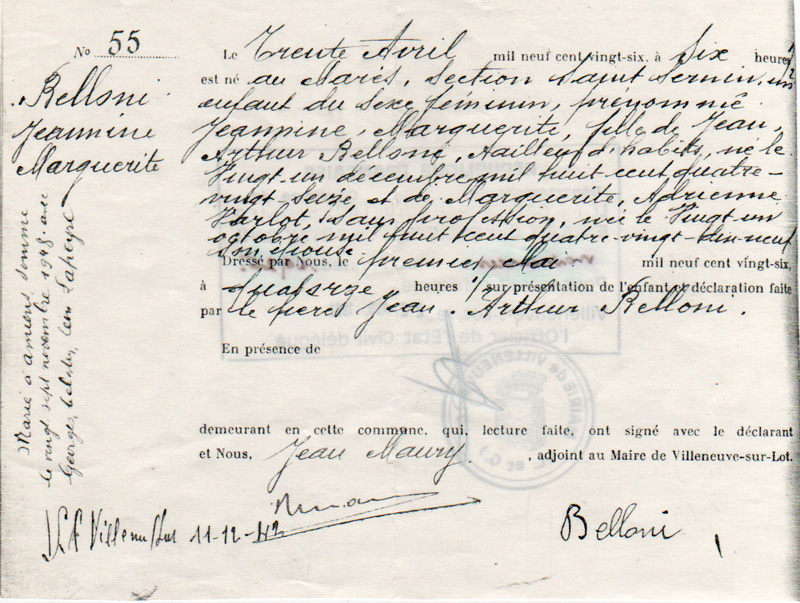 No 55
Le Trente Avril mil neuf cent vingt-six, à Six heures 1/2
est né au Marès, section Saint Sernin, un
enfant du sexe féminin, prénommé
Jeannine, Marguerite, fille de Jean,
Arthur Belloni, tailleur d'habits, né le
vingt un décembre mil huit cent quatre-
vingt seize et de Marguerite, Adrienne
Varlot, sans profession, née le vingt un
octobre mil huit cent quatre-vingt-dix-neuf
son épouse.
Dressé par Nous, le premier Mai mil neuf cent vingt-six,
à quatorze heures 1/2 sur présentation de l'enfant et déclaration faite
par le père Jean, Arthur Belloni.
En présence de
demeurant en cette commune, qui, lecture faite, ont signé avec le déclarant
et Nous, Jean Maury, adjoint au Maire de Villeneuve-sur-Lot.
Belloni
Belloni
Jeannine
Marguerite
Marié à Amiens, Somme
le vingt sept novembre 1948 avec
Georges, Léon Lapeyre
11-12-42
l'Officier de l'Etat Civil délégué
MAIRIE de VILLENEUVE